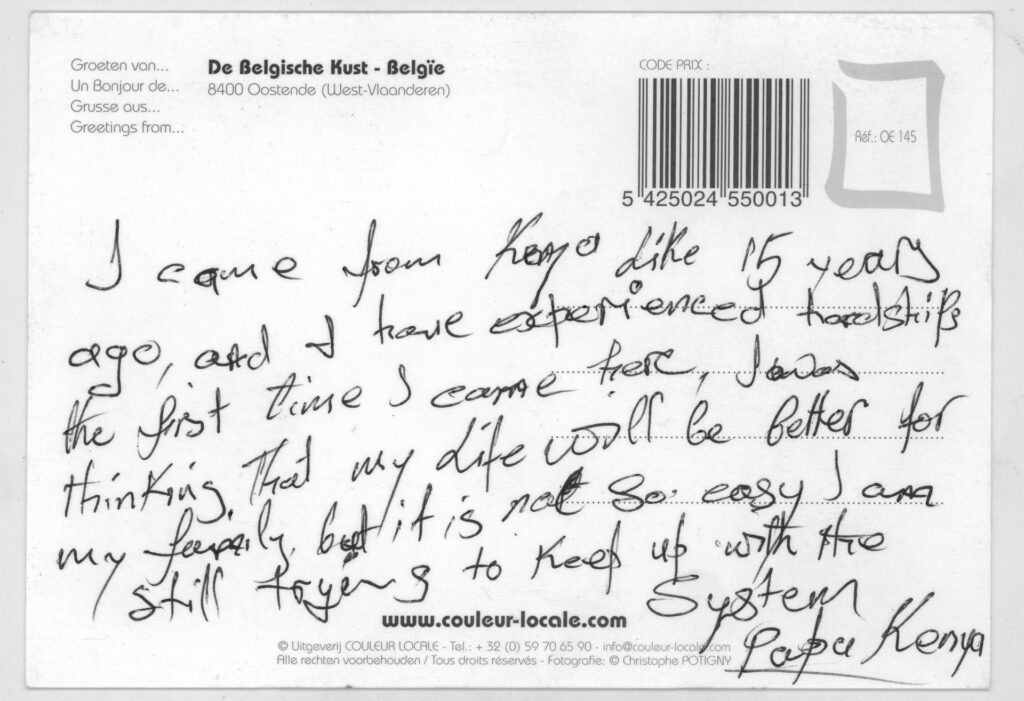 Groeten van...
Un Bonjour de...
Grusse aus...
Greetings from...
De Belgische Kust - Belgïe
8400 Oostende (West-Vlaanderen)
CODE PRIX :
5 425024 550013
Réf.: OE 145
I came from Kenya like 15 years
ago, and I have experienced hardships
the first time I came here, I was
thinking, that my life will be better for
my family, but it is not so easy I am
still trying to keep up with the
System
Papa Kenya
www.couleur-locale.com
© Uitgeverij COULEUR LOCALE - Tel.: + 32 (0) 59 70 65 90 - info@couleur-locale.com
Alle rechten voorbehouden / Tous droits réservés - Fotografie: © Christophe POTIGNY